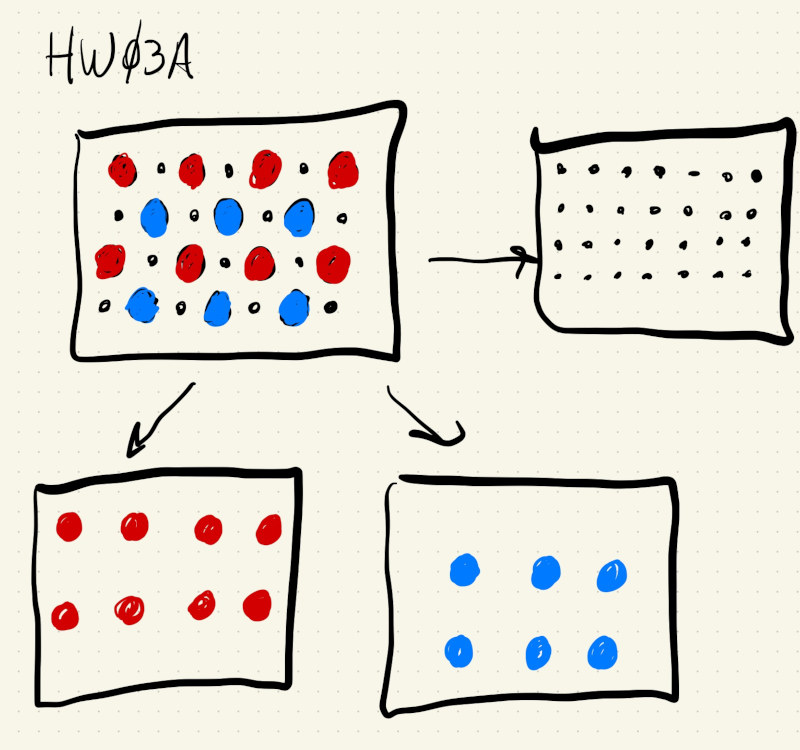 HWØ3A